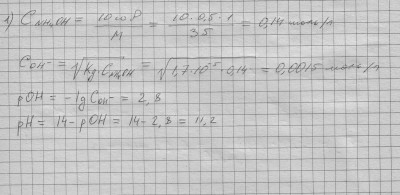 1) C_NH₄OH = 10ωρ / M = 10·0,5·1 / 35 = 0,14 моль/л
C_OH⁻ = √(Kд·C_NH₄OH) = √(1,7·10⁻⁵·0,14) = 0,0015 моль/л
pOH = -lg C_OH⁻ = 2,8
pH = 14-pOH = 14-2,8 = 11,2